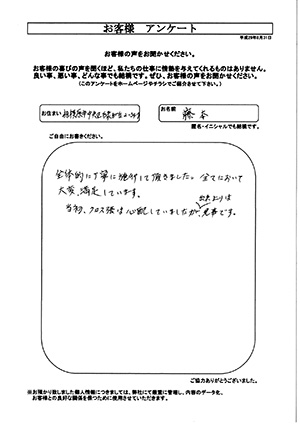 お客様　アンケート
平成29年8月31日
お客様の声をお聞かせください。
お客様の喜びの声を聞くほど、私たちの仕事に情熱を与えてくれるものはありません。
良い事、悪い事、どんな事でも結構です。ぜひ、お客様の声をお聞かせください。
(このアンケートをホームページやチラシでご紹介させて下さい。)
お住まい 相模原市中央区
お名前 藤本
匿名・イニシャルでも結構です。
ご自由にお書きください。
全体的に丁寧に施行して頂きました。全てにおいて
大変、満足しています。
当初、クロス張は心配していましたが、出来上りは見事です。
ご協力ありがとうございました。
※お預かり致しました個人情報につきましては、弊社にて厳重に管理し、内容のデータ化、
お客様との良好な関係を保つために使用させていただきます。